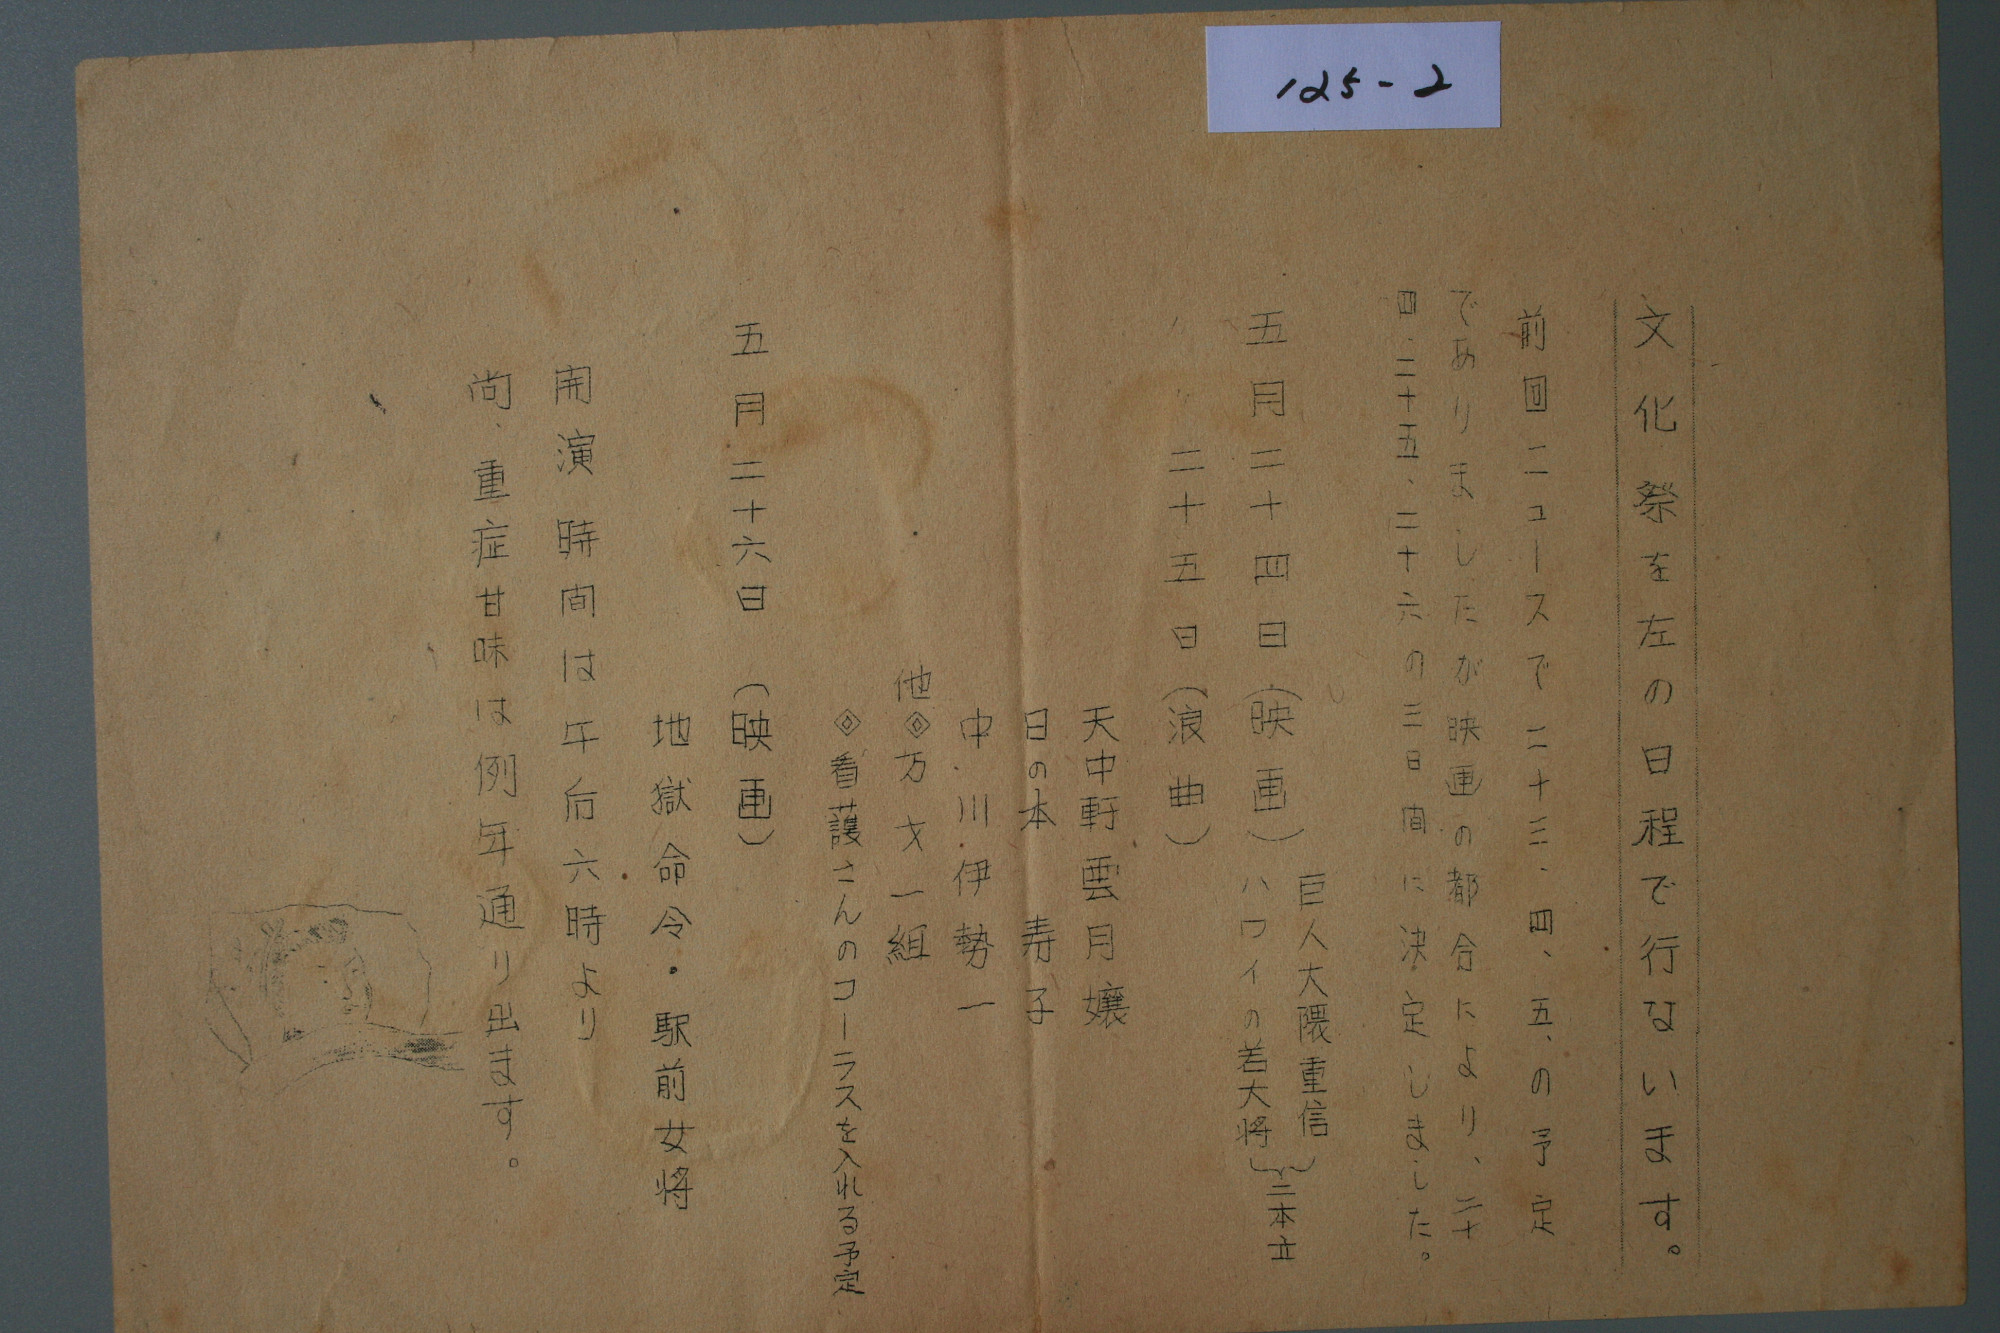 125-2
文化祭を左の日程で行ないます。
前回ニュースで二十三、四、五、の予定
でありましたが映画の都合により、二十
四、二十五、二十六の三日間に決定しました。
五月二十四日(映画)
巨人大隈重信
ハワイの若大将
二本立
〃 〃 二十五日(浪曲)
天中軒雲月嬢
日の本寿子
中川伊勢一
他◇万才一組
◇看護さんのコーラスを入れる予定
五月二十六日(映画)
地獄命令・駅前女将
開演時間は午后六時より
尚、重症甘味は例年通り出ます。